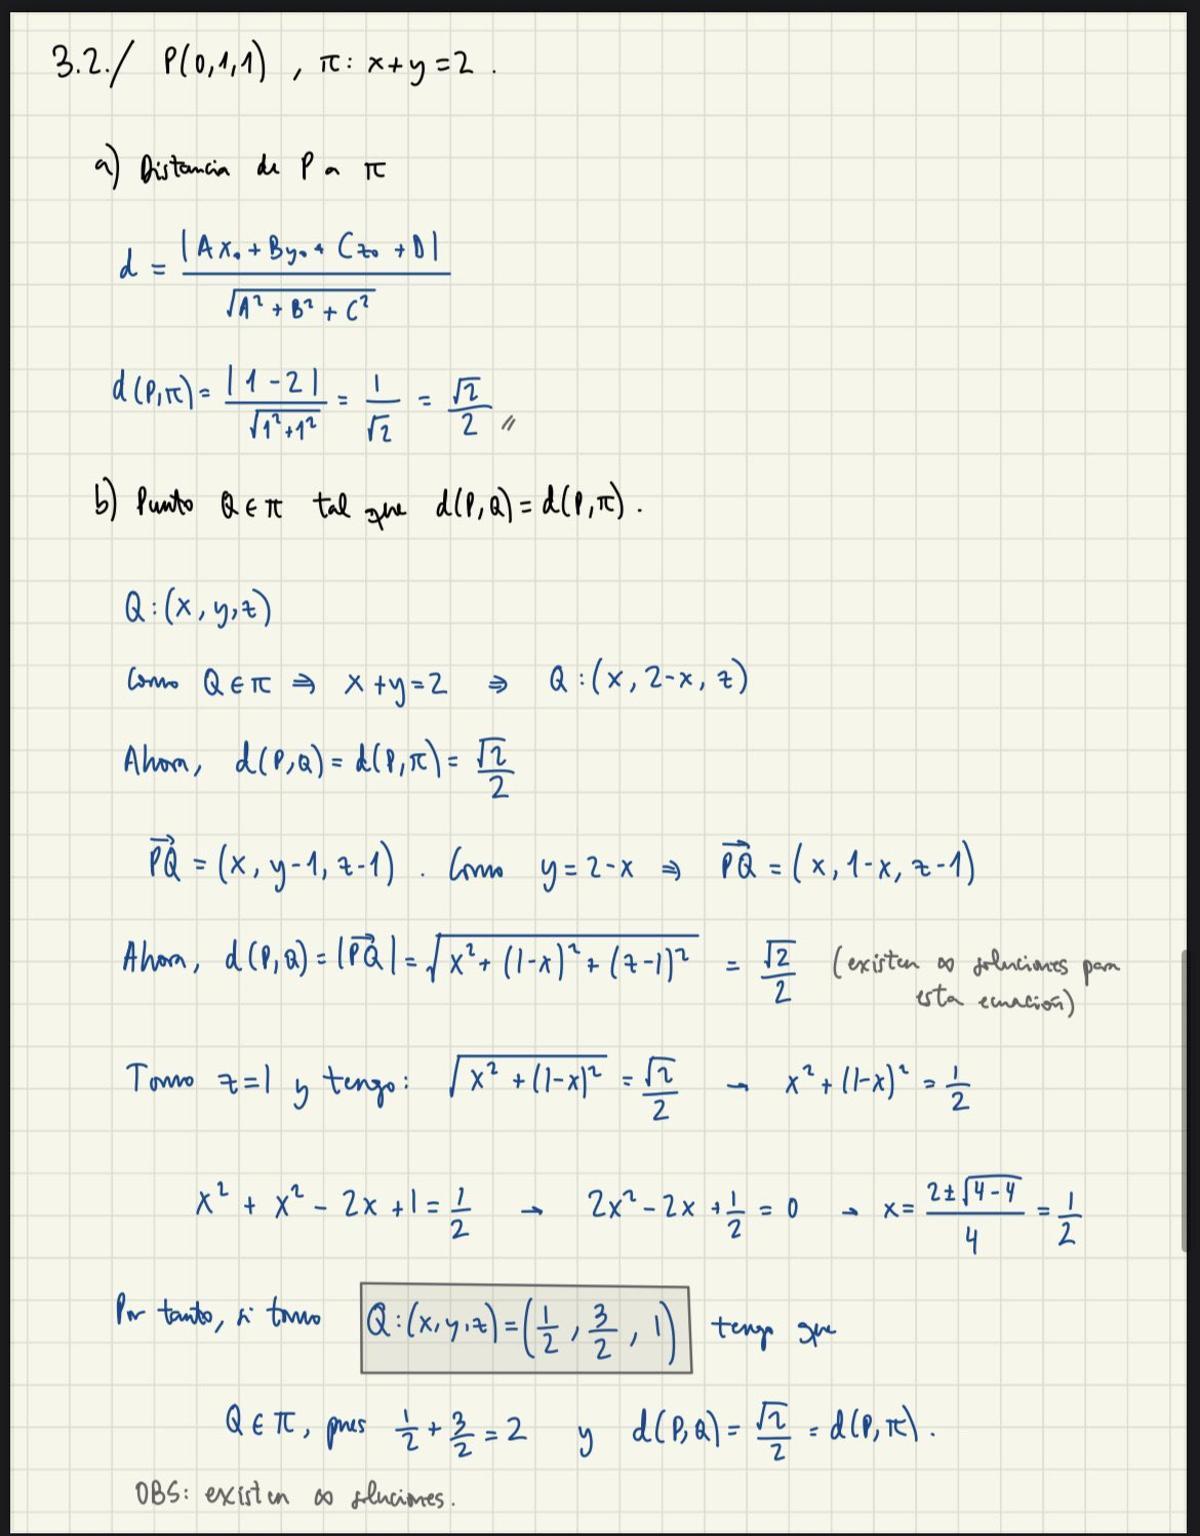 3.2./ P(0,1,1) , π: x+y=2 .
a) Distancia de P a π
d = |Ax₀ + By₀ + Cz₀ + D| / √(A² + B² + C²)
d(P,π) = |1-2| / √(1²+1²) = 1/√2 = √2/2 //
b) Punto Q ∈ π tal que d(P,Q) = d(P,π) .
Q : (x, y, z)
Como Q ∈ π ⇒ x+y=2 ⇒ Q : (x, 2-x, z)
Ahora, d(P,Q) = d(P,π) = √2/2
PQ⃗ = (x, y-1, z-1) . Como y = 2-x ⇒ PQ⃗ = (x, 1-x, z-1)
Ahora, d(P,Q) = |PQ⃗| = √(x² + (1-x)² + (z-1)²) = √2/2 (existen ∞ soluciones para
esta ecuación)
Tomo z=1 y tengo: √(x² + (1-x)²) = √2/2 → x² + (1-x)² = 1/2
x² + x² - 2x + 1 = 1/2 → 2x² - 2x + 1/2 = 0 → x = (2±√(4-4))/4 = 1/2
Por tanto, si tomo Q : (x,y,z) = (1/2, 3/2, 1) tengo que
Q ∈ π, pues 1/2 + 3/2 = 2 y d(P,Q) = √2/2 = d(P,π) .
OBS: existen ∞ soluciones.